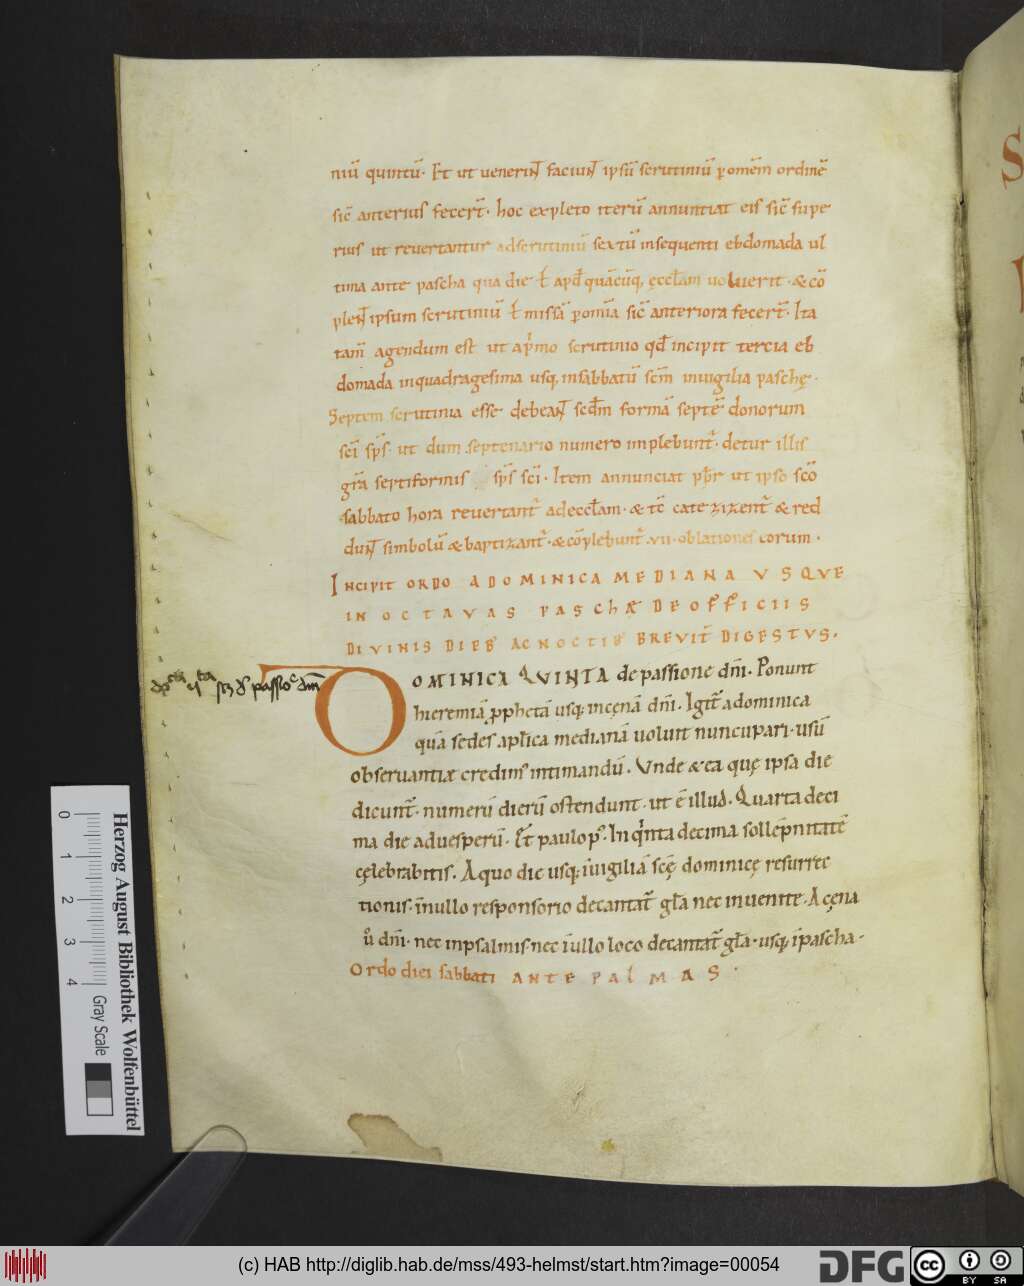 niū quintū. Et ut uenerint̄ faciunt̄ ipsū scrutiniū ꝑ omēm ordinē
sic̄ anterius fecer̄t. hoc expleto iterū annuntiat eis sic̄ supe
rius ut reuertantur adscrutiniū sextū insequenti ebdomada ul
tima ante pascha qua die ł apd̄ quācūq; ęccłam uoluerit. & cō
plent̄ ipsum scrutiniū ł missā ꝑ omīa sic̄ anteriora fecer̄t. Ita
tam̄ agendum est ut aṗmo scrutinio qd̄ incipit tercia eb
domada inquadragesima usq; insabbatū scm̄ inuigilia paschę.
Septem scrutinia esse debeant̄ scdm̄ formā septē donorum
sc̄i sp̄s. ut dum septenario numero implebunt᷑. detur illis
gr̄a septiformis sp̄s sc̄i. Item annunciat pbr̄ ut ipso scō
sabbato hora reuertant᷑ adeccłam. & tc̄ catezizent᷑ & red
dunt̄ simbolū & baptizant᷑. & cōplebunt᷑ .vii. oblationes eorum.
INCIPIT ORDO A DOMINICA MEDIANA VSQVE
IN OCTAVAS PASCHÆ DE OFFICIIS
DIVINIS DIEB' AC NOCTIB' BREVIT̄ DIGESTVS.
DOMINICA QVINTA de passione dn̄i. Ponunt
hieremiā ꝓphetā usq; incęnā dn̄i. Igit᷑ adominica
quā sedes apłica medianā uoluit nuncupari. usū
obseruantiæ credim' intimandū. Vnde & ea quę ipsa die
dicunt᷑. numerū dierū ostendunt. ut ē illud. Quarta deci
ma die aduesperū. Et̄ paulo p'. In qͥnta decima sollēpnitatē
cęlebrabitis. A quo die usq; īuigiliā scę̄ dominicę resurrec
tionis. īnullo responsorio decantat᷑ gła nec inuenite. A cęna
u͛ dn̄i. nec inpsalmis nec īullo loco decantat᷑ gła. usq; īpascha.
Ordo diei sabbati ANTE PALMAS.
0 1 2 3 4
Gray Scale
Herzog August Bibliothek Wolfenbüttel
(c) HAB http://diglib.hab.de/mss/493-helmst/start.htm?image=00054
DFG
cc BY SA